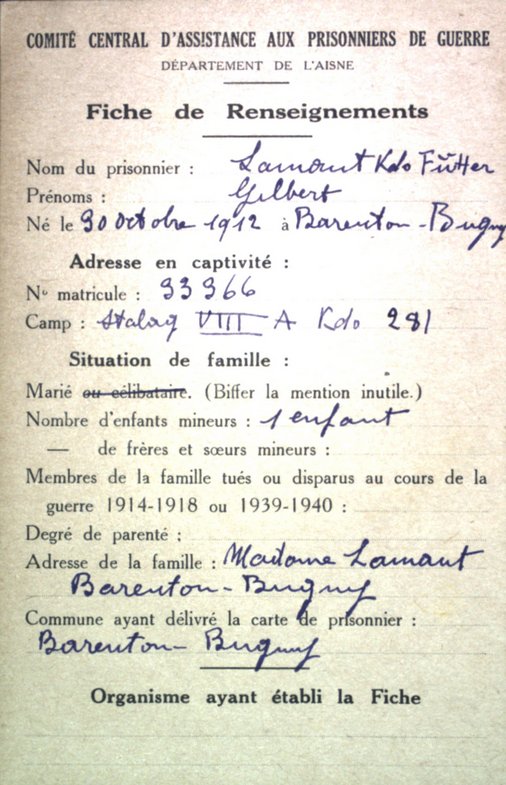 COMITÉ CENTRAL D'ASSISTANCE AUX PRISONNIERS DE GUERRE
DÉPARTEMENT DE L'AISNE
Fiche de Renseignements
Nom du prisonnier : Lamant Kdo Fütter
Prénoms : Gilbert
Né le 30 Octobre 1912 à Barenton-Bugny
Adresse en captivité :
N° matricule : 33366
Camp : Stalag VIII A Kdo 281
Situation de famille :
Marié ou célibataire. (Biffer la mention inutile.)
Nombre d'enfants mineurs : 1 enfant
— de frères et sœurs mineurs :
Membres de la famille tués ou disparus au cours de la
guerre 1914-1918 ou 1939-1940 :
Degré de parenté :
Adresse de la famille : Madame Lamant
Barenton-Bugny
Commune ayant délivré la carte de prisonnier :
Barenton-Bugny
Organisme ayant établi la Fiche